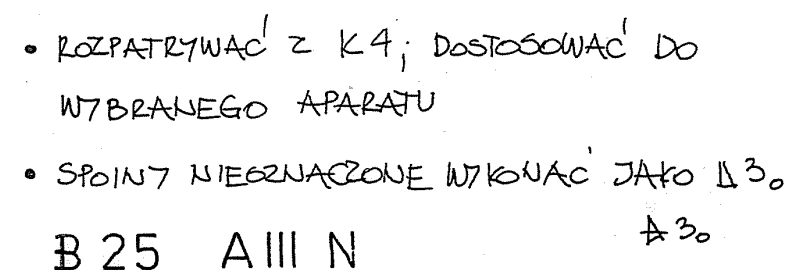 • ROZPATRYWAĆ Z K4; DOSTOSOWAĆ DO
WYBRANEGO APARATU
• SPOINY NIEOZNACZONE WYKONAĆ JAKO ⊿3.
⊿3.
B 25 A III N